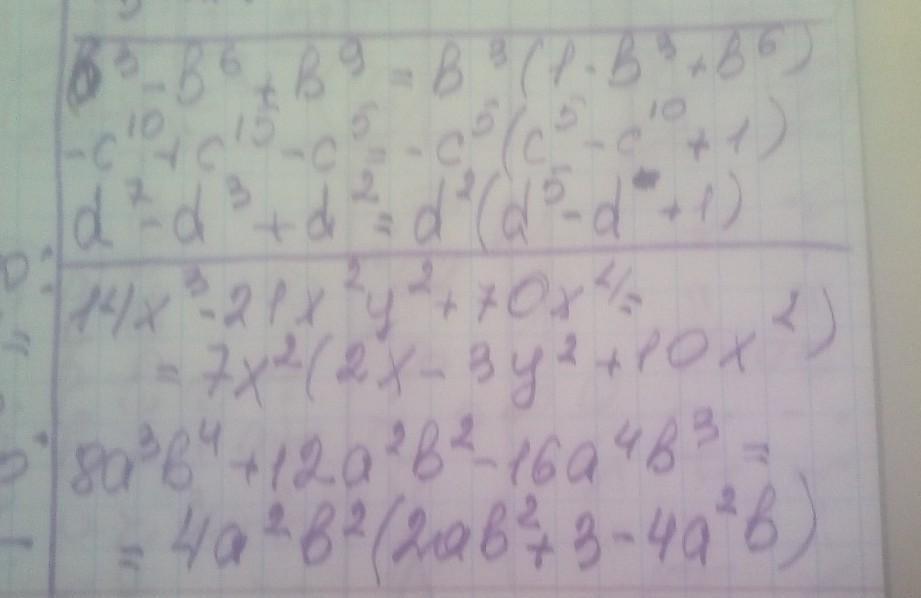 b³ - b⁶ + b⁹ = b³(1 - b³ + b⁶)
-c¹⁰ + c¹⁵ - c⁵ = -c⁵(c⁵ - c¹⁰ + 1)
d⁷ - d³ + d² = d²(d⁵ - d + 1)
14x³ - 21x²y² + 70x⁴ =
= 7x²(2x - 3y² + 10x²)
8a³b⁴ + 12a²b² - 16a⁴b³ =
= 4a²b²(2ab² + 3 - 4a²b)